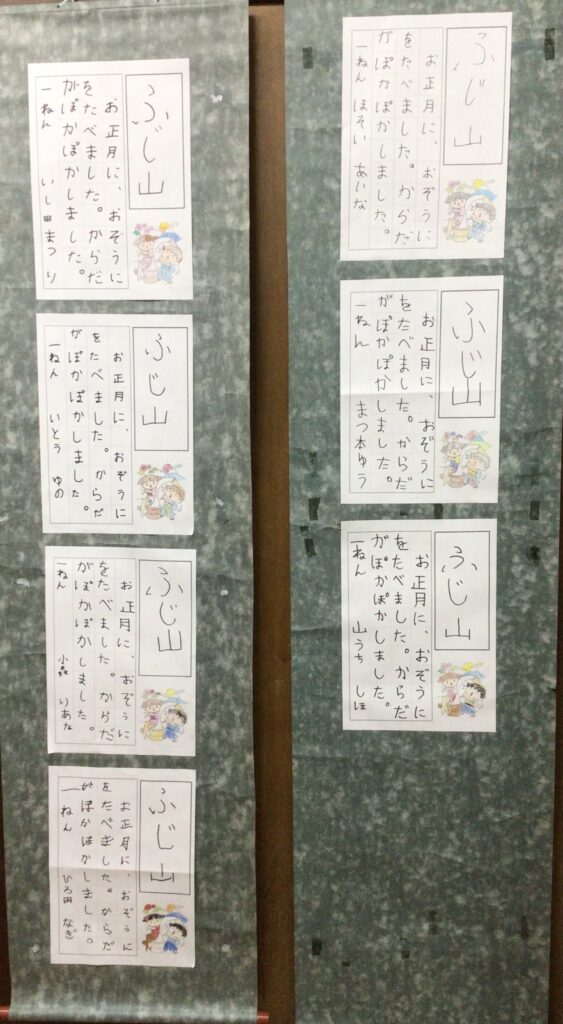 ふじ山
お正月に、おぞうに
をたべました。からだ
がぽかぽかしました。
一ねん ほそい あいな
ふじ山
お正月に、おぞうに
をたべました。からだ
がぽかぽかしました。
一ねん まつ本ゆう
ふじ山
お正月に、おぞうに
をたべました。からだ
がぽかぽかしました。
一ねん 山うち しほ
ふじ山
お正月に、おぞうに
をたべました。からだ
がぽかぽかしました。
一ねん いし田まつり
ふじ山
お正月に、おぞうに
をたべました。からだ
がぽかぽかしました。
一ねん いとう ゆの
ふじ山
お正月に、おぞうに
をたべました。からだ
がぽかぽかしました。
一ねん 小森 りあな
ふじ山
お正月に、おぞうに
をたべました。からだ
がぽかぽかしました。
一ねん ひろ田 なぎ